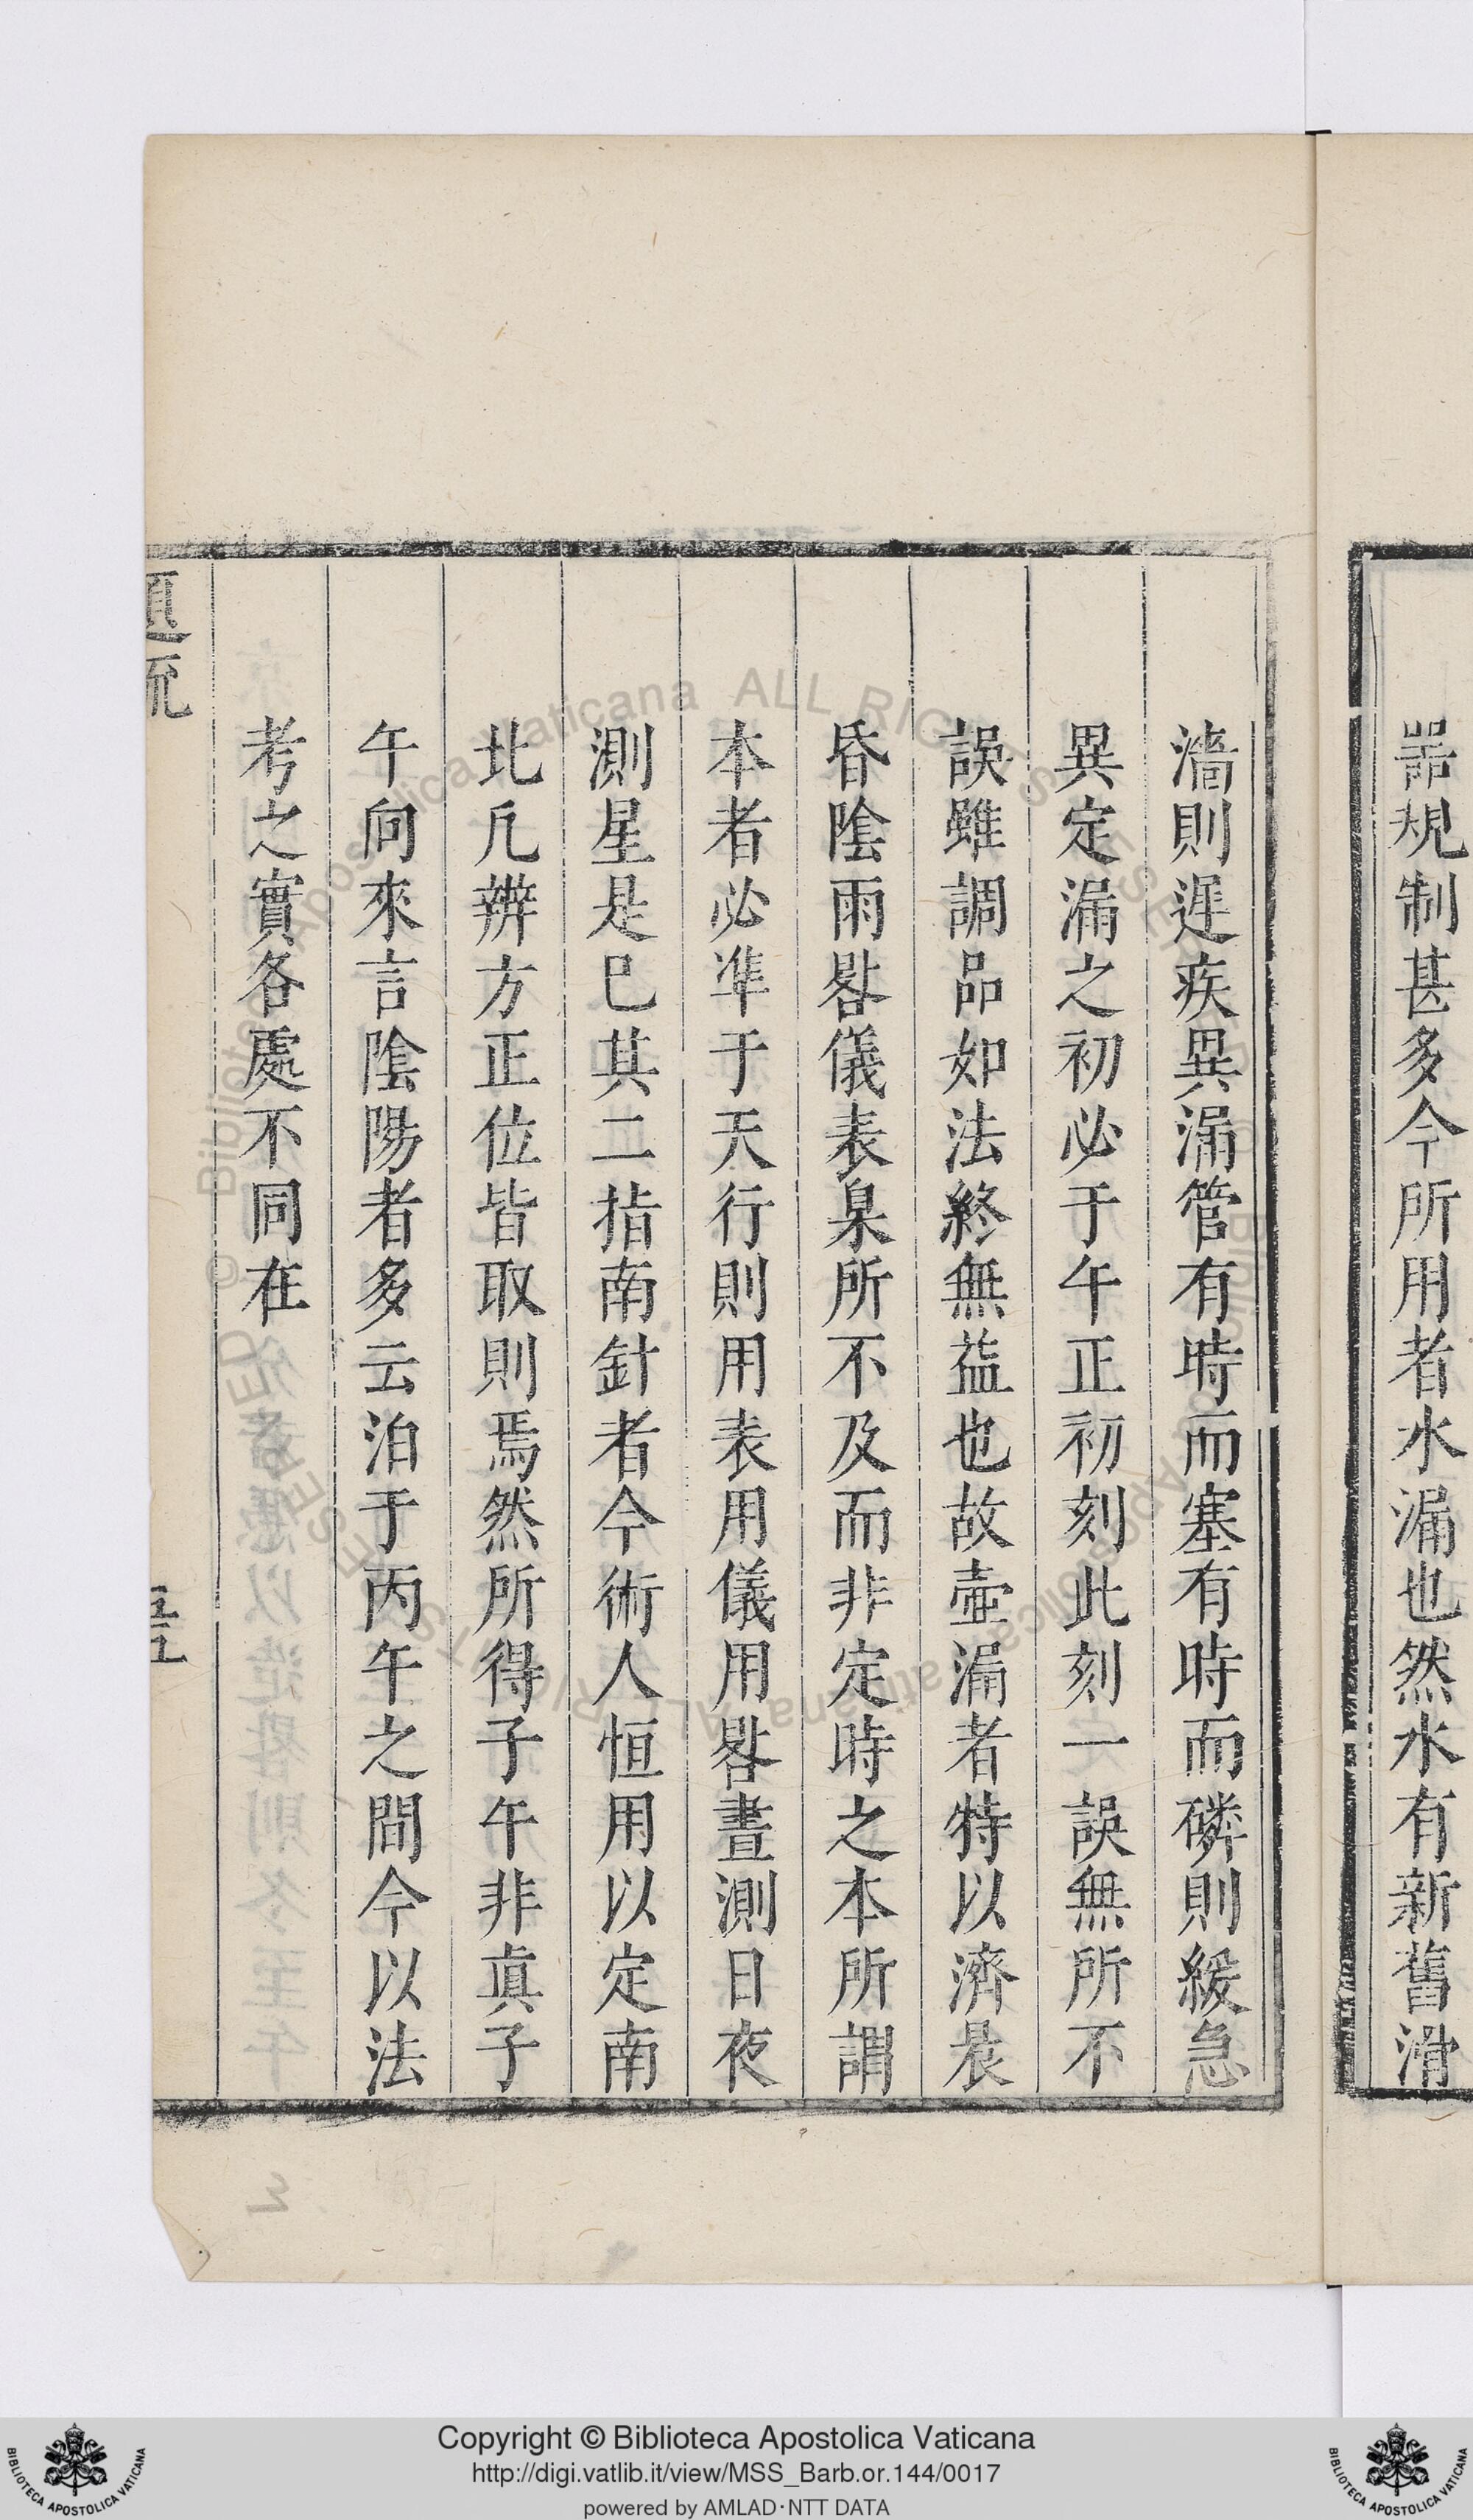 噐規制甚多今所用者水漏也然水有新舊滑
濇則遲疾異漏管有時而塞有時而磷則緩急
異定漏之初必于午正初刻此刻一誤無所不
誤雖調品如法終無益也故壺漏者特以濟晨
昏陰雨晷儀表臬所不及而非定時之本所謂
本者必凖于天行則用表用儀用晷晝測日夜
測星是巳其二指南針者今術人恒用以定南
北凡辨方正位皆取則焉然所得子午非眞子
午向來言陰陽者多云泊于丙午之間今以法
考之實各處不同在
五
Copyright © Biblioteca Apostolica Vaticana
http://digi.vatlib.it/view/MSS_Barb.or.144/0017
powered by AMLAD·NTT DATA
BIBLIOTECA APOSTOLICA VATICANA
BIBLIOTECA APOSTOLICA VATICANA